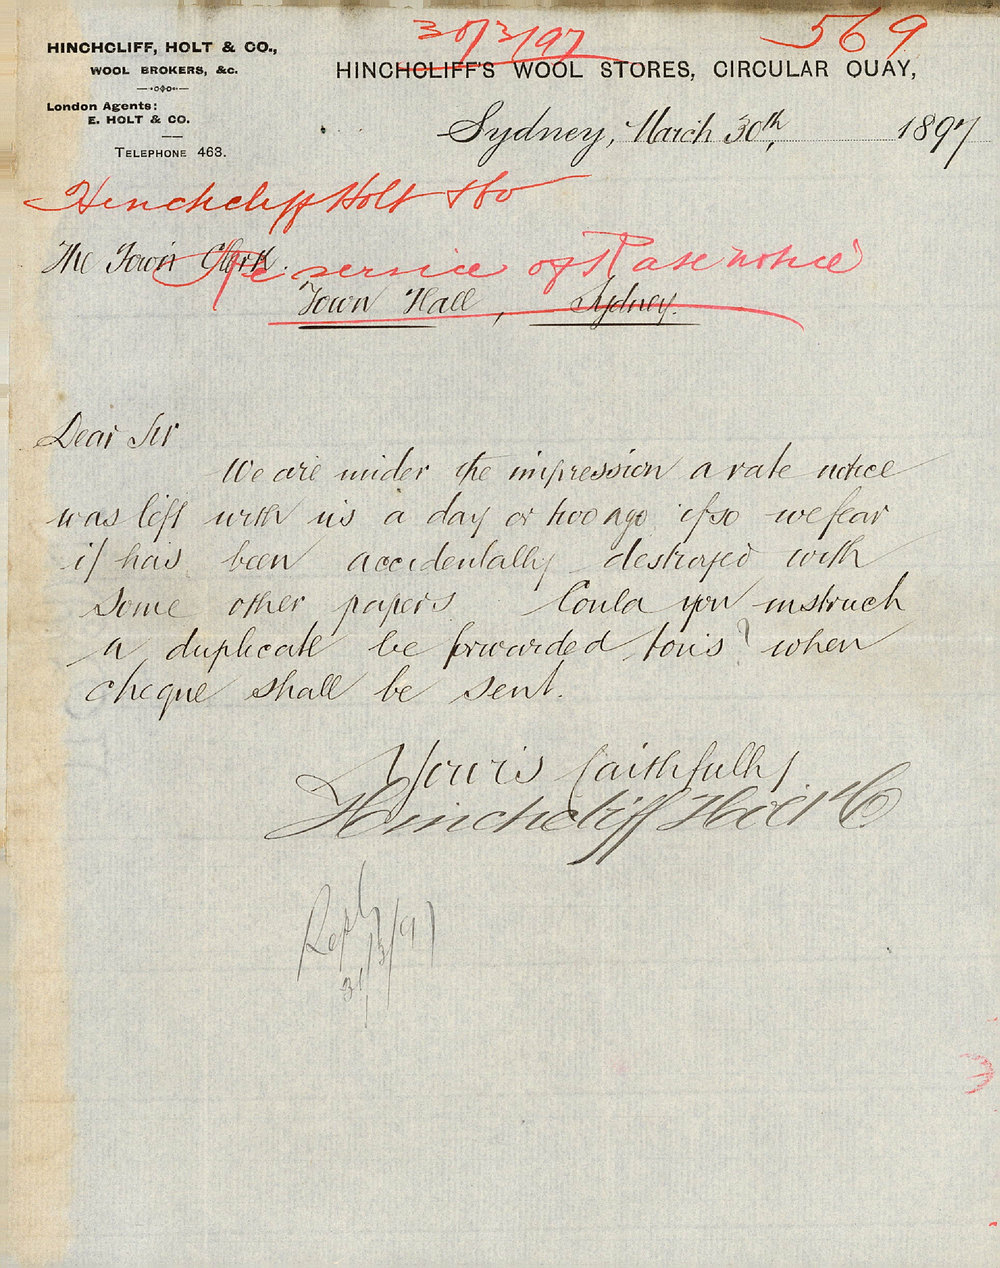 30/3/97 569
HINCHCLIFF, HOLT & CO.,
WOOL BROKERS, &c.
London Agents:
E. HOLT & CO.
TELEPHONE 463.
HINCHCLIFF'S WOOL STORES, CIRCULAR QUAY,
Sydney, March 30th, 1897
Hinchcliff Holt & Co
The Town Clerk.
Re service of Rate notice
Town Hall, Sydney.
Dear Sir
We are under the impression a rate notice
was left with us a day or two ago, if so we fear
it has been accidentally destroyed with
some other papers. Could you instruct
a duplicate be forwarded to us? when
cheque shall be sent.
Yours faithfully
Hinchcliff Holt & Co
Reply
31/3/97